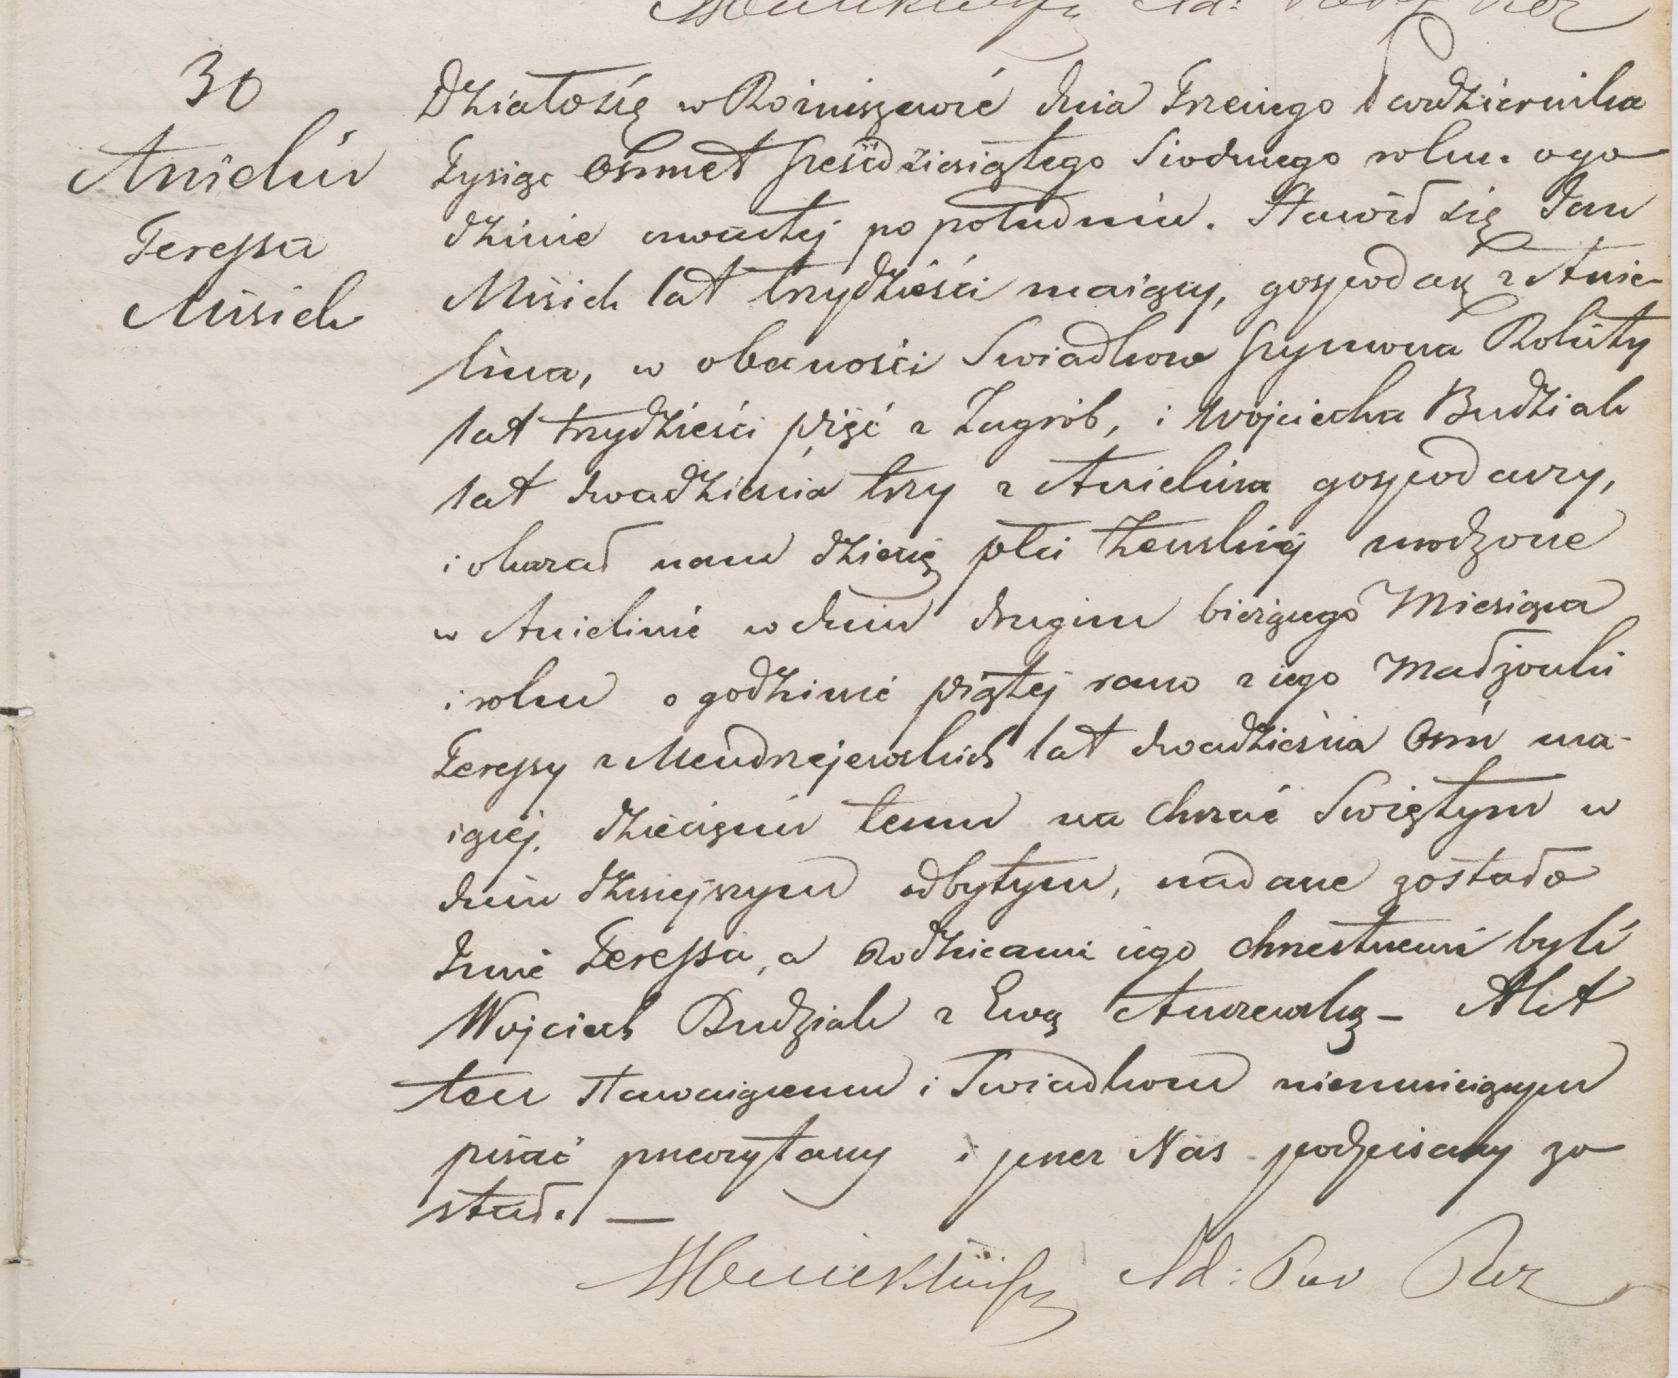 30
Anielin
Teressa
Misiek
Działo się w Rozniszewie dnia Trzeciego Pazdziernika
Tysiąc Osmset Sześćdziesiątego Siodmego roku. o go
dzinie czwartej po południu. Stawił się Jan
Misiek lat trzydzieści maiący, gospodarz z Anie-
lina, w obecności Swiadkow Szymona Rokity
lat trzydzieści pięć z Zagrób, i Wojciecha Budziak
lat dwadzieścia trzy z Anielina gospodarzy,
i okazał nam dziecię płci żeńskiej urodzone
w Anielinie w dniu drugim bieżącego Miesiąca
i roku o godzinie piątej rano z iego Małżonki
Teressy z Mendrzejewskich lat dwadzieścia Ośm ma-
iącej. dziecięciu temu na chrzcie Swiętym w
dniu dzisiejszym odbytym, nadane zostało
Imie Teressa, a Rodzicami iego chrzestnemi byli
Wojciech Budziak z Ewą – Akt
ten stawaiącemu i Swiadkom nieumieiącym
pisać przeczytany i przez Nas podpisany zo
stał. —
Ad: